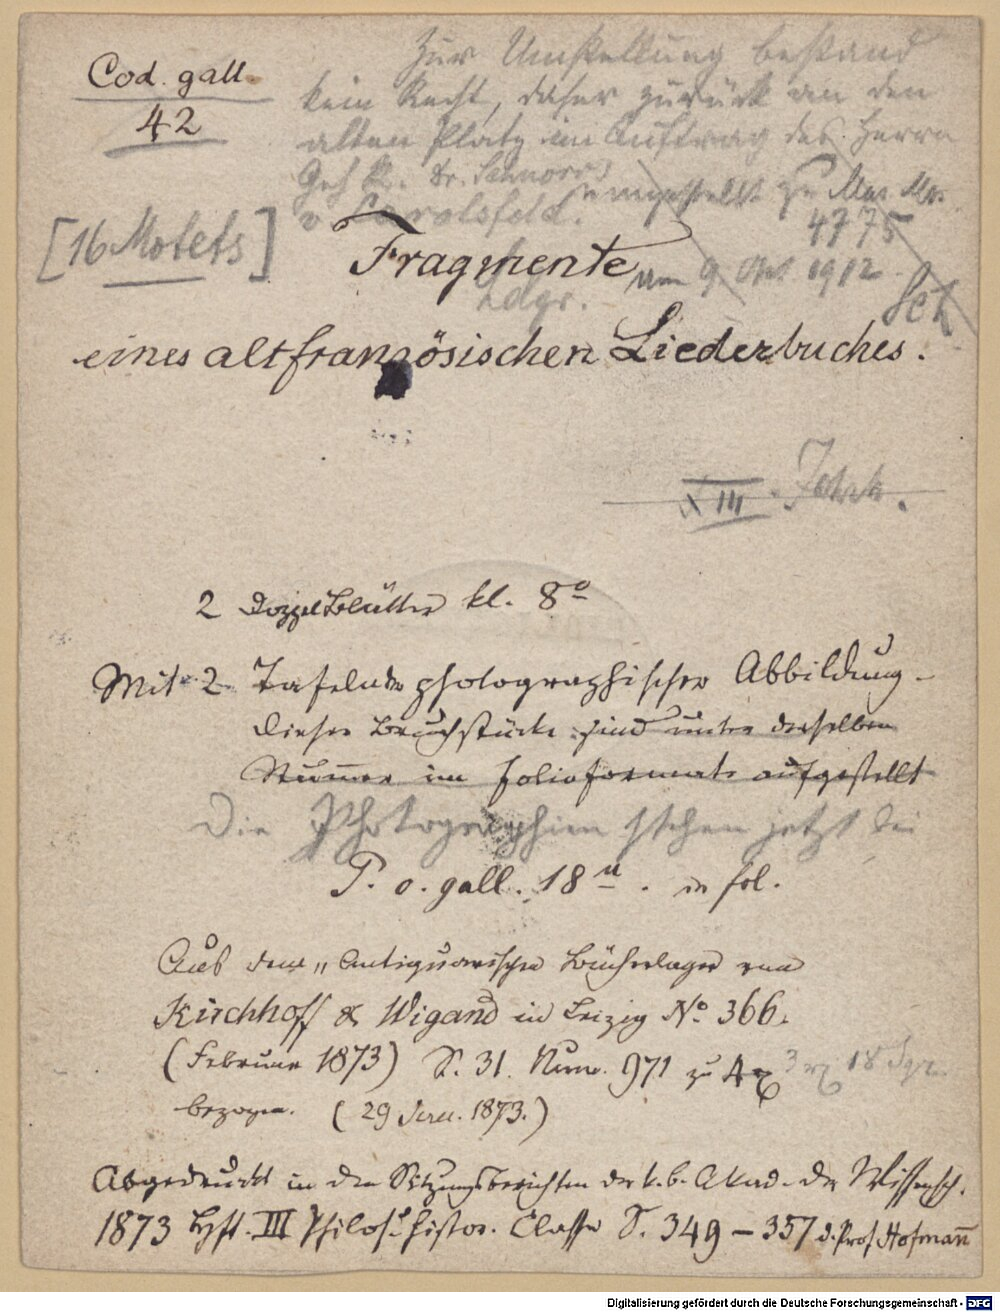 Cod. gall.
42
Zur Umstellung bestand
kein Recht, daher zurück an den
alten Platz im Auftrag des Herrn
Geh. R. Dr. Schnorr
v Carolsfeld.
umgestellt zu Mus. Ms.
4775
am 9. Okt 1912
[16 Motets]
Fragmente
eines altfranzösischen Liederbuches.
XIII. Jahrh.
2 Doppelblätter kl. 8º
Mit 2 Tafeln photographischer Abbildung
dieser Bruchstücke sind unter derselben
Nummer im Folioformate aufgestellt
Die Photographien stehen jetzt bei
P. o. gall. 18 u. in fol.
Aus dem „Antiquarischen Bücherlager von
Kirchhoff & Wigand in Leipzig Nº 366.
(Februar 1873) S. 31. Num. 971 zu 4
bezogen. (29 1873.)
Abgedruckt in den Sitzungsberichten der k. b. Akad. der Wissensch.
1873 Heft. III Philos. histor. Classe S. 349 – 357 d. Prof Hofmann
Digitalisierung gefördert durch die Deutsche Forschungsgemeinschaft - DFG